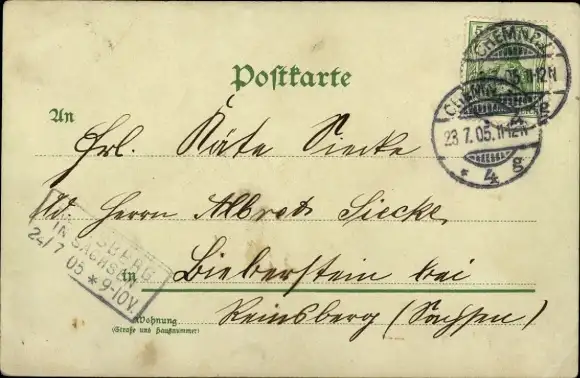 5
CHEMNITZ
23 7.05.11-12N
* 4 g
Postkarte
An
Frl. Käte Siecke
Ad. Herrn Albret Siecke
SBERG
IN SACHSEN
24/7 05 * 9-10V.
in Bieberstein bei
Reinsberg (Sachsen)
Wohnung
(Straße und Hausnummer)